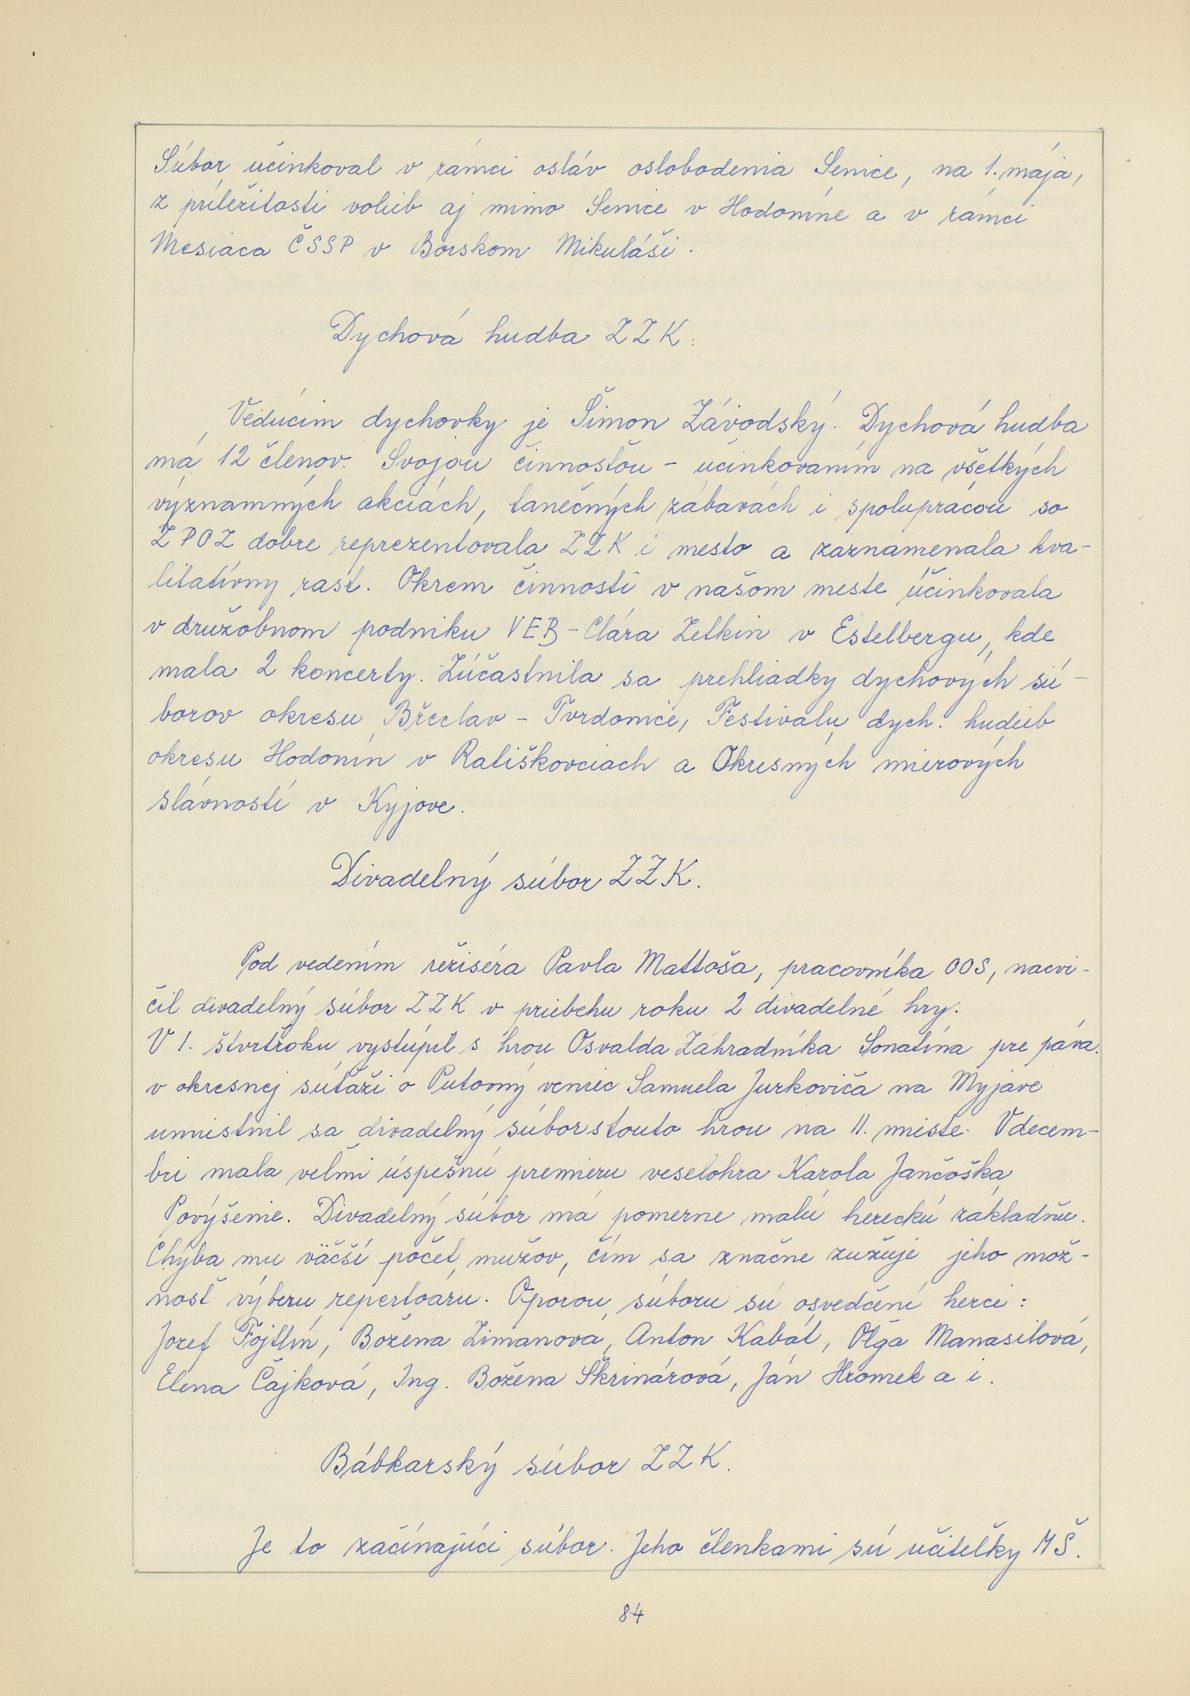 Súbor učinkoval v rámci osláv oslobodenia Senice, na 1. mája,
z príležitosti volieb aj mimo Senice v Hodoníne a v rámci
Mesiaca ČSSP v Borskom Mikuláši.
Dychová hudba ZZK.
Vedúcim dychovky je Šimon Závodský. Dychová hudba
má 12 členov. Svojou činnosťou - učinkovaním na všetkých
významných akciách, tanečných zábavách i spoluprácou so
ZPOZ dobre reprezentovala ZZK i mesto a zaznamenala kva-
litatívny rast. Okrem činnosti v našom meste účinkovala
v družobnom podniku VEB - Clára Zetkin v Estelbergu, kde
mala 2 koncerty. Zúčastnila sa prehliadky dychových sú-
borov okresu Břeclav - Tvrdonice, Festivalu dych. hudieb
okresu Hodonín v Ratiškovciach a Okresných mierových
slávností v Kyjove.
Divadelný súbor ZZK.
Pod vedením režiséra Pavla Mattoša, pracovníka OOS, nacvi-
čil divadelný súbor ZZK v priebehu roku 2 divadelné hry.
V 1. štvrťroku vystúpil s hrou Osvalda Záhradníka Sonatína pre páva.
v okresnej súťaži o Putovný veniec Samuela Jurkoviča na Myjave
umiestnil sa divadelný súbor s touto hrou na II. mieste. V decem-
bri mala veľmi úspešnú premieru veselohra Karola Jančoška
Povýšenie. Divadelný súbor má pomerne malú hereckú základňu.
Chýba mu väčší počet mužov, čím sa značne zužuje jeho mož-
nosť výberu repertoáru. Oporou súboru sú osvedčení herci:
Jozef Fojtlín, Božena Zimanová, Anton Kabát, Oľga Manasilová,
Elena Čajková, Ing. Božena Škrinárová, Ján Hromek a i.
Bábkarský súbor ZZK.
Je to začínajúci súbor. Jeho členkami sú učiteľky MŠ.
84